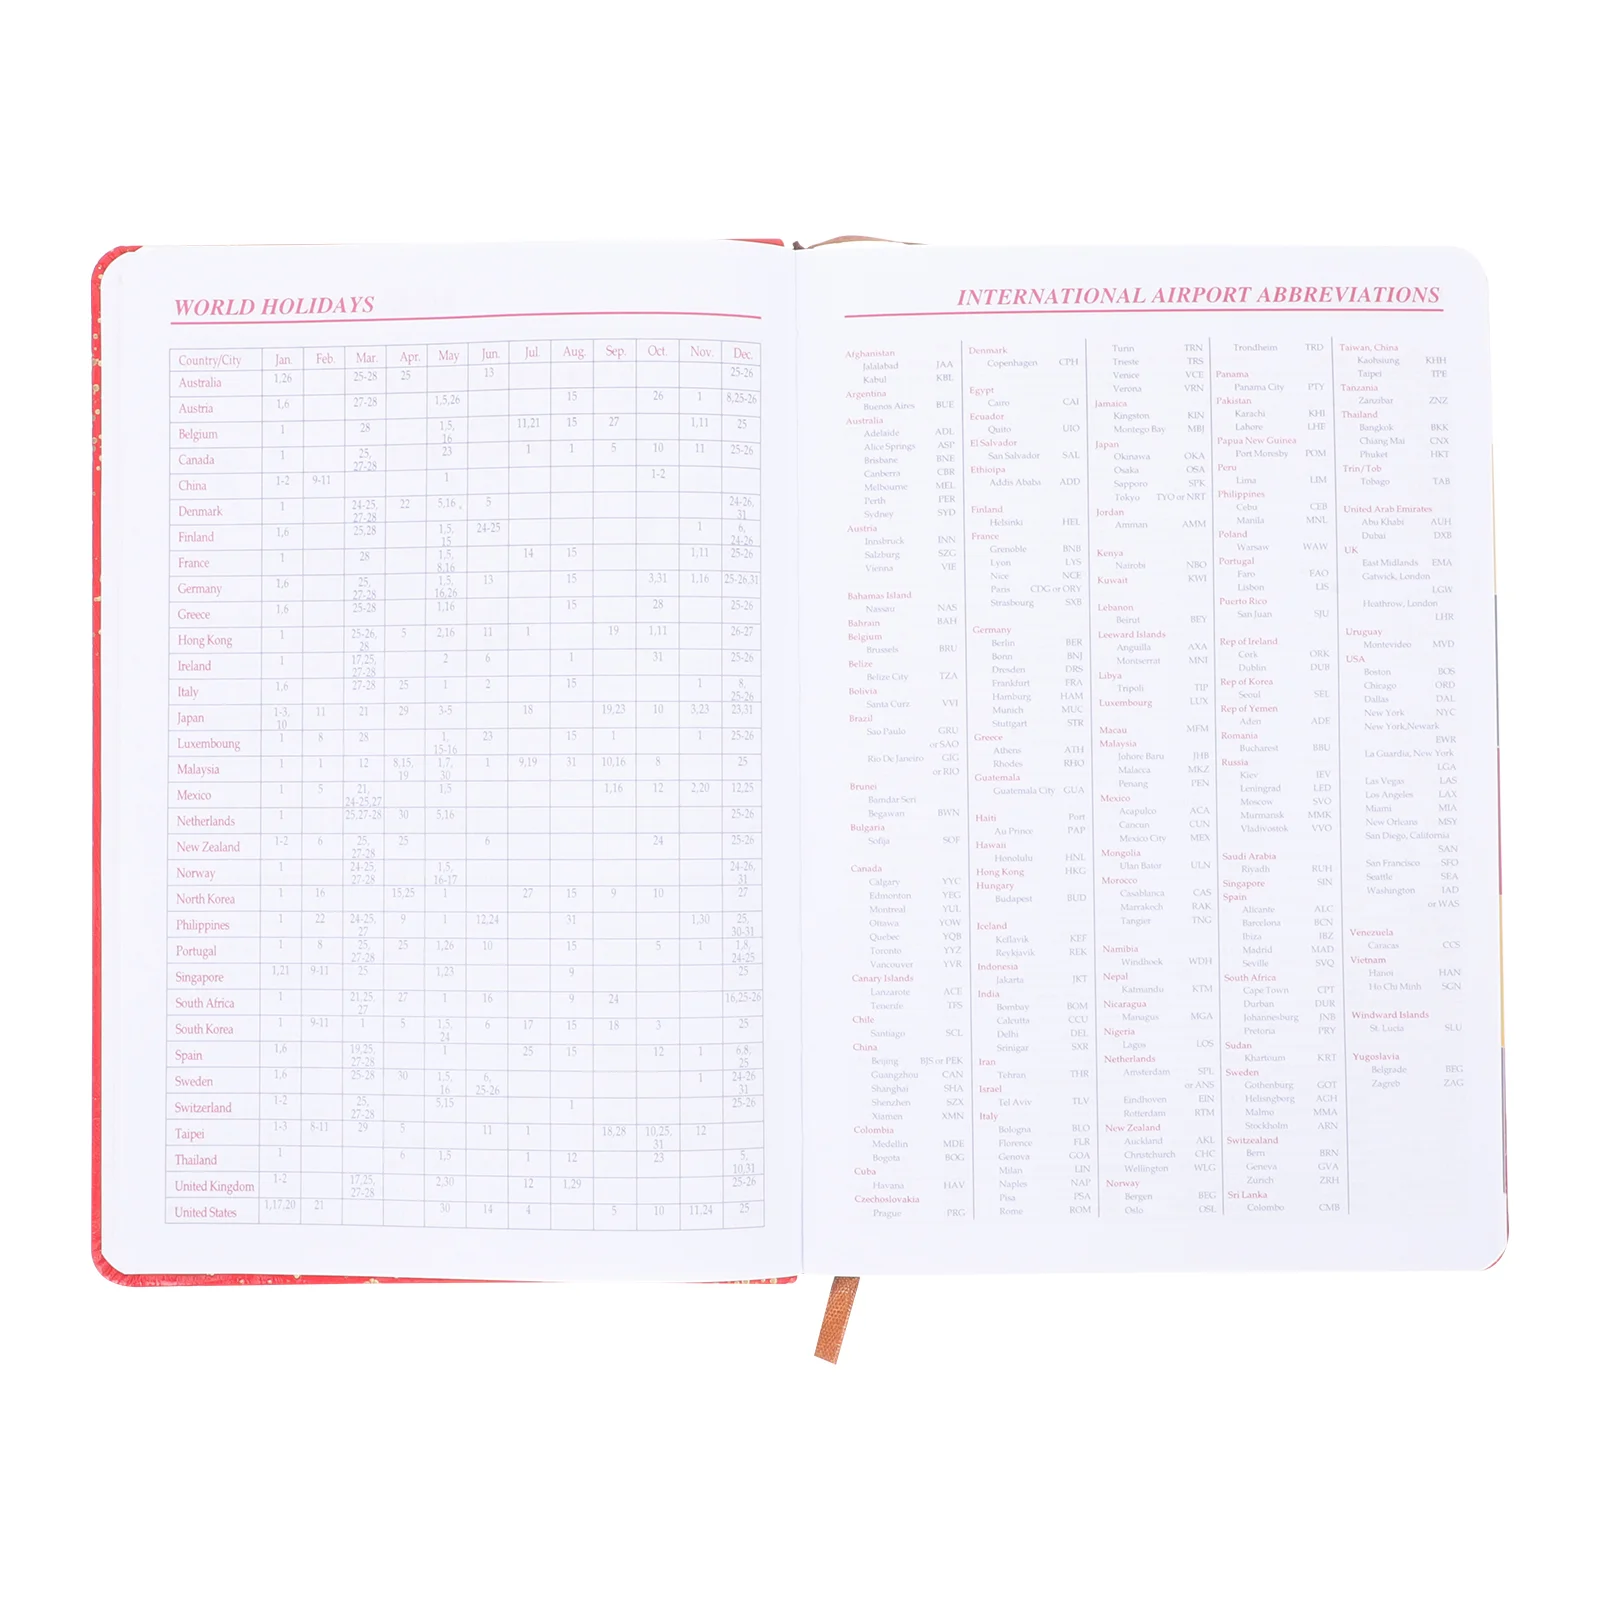 WORLD HOLIDAYS
Country/City Jan. Feb. Mar. Apr. May Jun. Jul. Aug. Sep. Oct. Nov. Dec.
Australia 1,26 25-28 25 13 25-26
Austria 1,6 27-28 1,5,26 15 26 1 8,25-26
Belgium 1 28 1,5,16 11,21 15 27 1,11 25
Canada 1 25,27-28 23 1 1 5 10 11 25-26
China 1-2 9-11 1 1-2
Denmark 1 24-25,27-28 22 5,16 5 24-26,31
Finland 1,6 25,28 1,5,15 24-25 1 6,24-26
France 1 28 1,5,8,16 14 15 1,11 25-26
Germany 1,6 25,27-28 1,5,16,26 13 15 3,31 1,16 25-26,31
Greece 1,6 25-28 1,16 15 28 25-26
Hong Kong 1 25-26,28 5 2,16 11 1 19 1,11 26-27
Ireland 1 17,25,27-28 2 6 1 31 25-26
Italy 1,6 27-28 25 1 2 15 1 8,25-26
Japan 1-3,10 11 21 29 3-5 18 19,23 10 3,23 23,31
Luxemboung 1 8 28 1,15-16 23 15 1 1 25-26
Malaysia 1 1 12 8,15,19 1,7,30 1 9,19 31 10,16 8 25
Mexico 1 5 21,24-25,27 1,5 1,16 12 2,20 12,25
Netherlands 1 25,27-28 30 5,16 25-26
New Zealand 1-2 6 25,27-28 25 6 24 25-26
Norway 1 24-25,27-28 1,5,16-17 24-26,31
North Korea 1 16 15,25 1 27 15 9 10 27
Philippines 1 22 24-25,27 9 1 12,24 31 1,30 25,30-31
Portugal 1 8 25,27-28 25 1,26 10 15 5 1 1,8,24-25
Singapore 1,21 9-11 25 1,23 9 25
South Africa 1 21,25,27 27 1 16 9 24 16,25-26
South Korea 1 9-11 1 5 1,5,24 6 17 15 18 3 25
Spain 1,6 19,25,27-28 1 25 15 12 1 6,8,25
Sweden 1,6 25-28 30 1,5,16 6,25-26 1 24-26,31
Switzerland 1-2 25,27-28 5,15 1 25-26
Taipei 1-3 8-11 29 5 11 1 18,28 10,25,31 12
Thailand 1 6 1,5 1 12 23 5,10,31
United Kingdom 1-2 17,25,27-28 2,30 12 1,29 25-26
United States 1,17,20 21 30 14 4 5 10 11,24 25
INTERNATIONAL AIRPORT ABBREVIATIONS
Afghanistan
Jalalabad JAA
Kabul KBL
Argentina
Buenos Aires BUE
Australia
Adelaide ADL
Alice Springs ASP
Brisbane BNE
Canberra CBR
Melbourne MEL
Perth PER
Sydney SYD
Austria
Innsbruck INN
Salzburg SZG
Vienna VIE
Bahamas Island
Nassau NAS
Bahrain BAH
Belgium
Brussels BRU
Belize
Belize City TZA
Bolivia
Santa Curz VVI
Brazil
Sao Paulo GRU
or SAO
Rio De Janeiro GIG
or RIO
Brunei
Bamdar Seri
Begawan BWN
Bulgaria
Sofija SOF
Canada
Calgary YYC
Edmonton YEG
Montreal YUL
Ottawa YOW
Quebec YQB
Toronto YYZ
Vancouver YVR
Canary Islands
Lanzarote ACE
Tenerife TFS
Chile
Santiago SCL
China
Beijing BJS or PEK
Guangzhou CAN
Shangbai SHA
Shenzhen SZX
Xiamen XMN
Colombia
Medellin MDE
Bogota BOG
Cuba
Havana HAV
Czechoslovakia
Prague PRG
Denmark
Copenhagen CPH
Egypt
Cairo CAI
Ecuador
Quito UIO
El Salvador
San Salvador SAL
Ethioipa
Addis Ababa ADD
Finland
Helsinki HEL
France
Grenoble BNB
Lyon LYS
Nice NCE
Paris CDG or ORY
Strasbourg SXB
Germany
Berlin BER
Bonn BNJ
Dresden DRS
Frankfurt FRA
Hamburg HAM
Munich MUC
Stuttgart STR
Greece
Athens ATH
Rhodes RHO
Guatemala
Guatemala City GUA
Haiti Port
Au Prince PAP
Hawan
Honolulu HNL
Hong Kong HKG
Hungary
Budapest BUD
Iceland
Keflavik KEF
Reykjuvik REK
Indonesia
Jakarta JKT
India
Bombay BOM
Calcutta CCU
Delhi DEL
Srinigar SXR
Iran
Tehran THR
Israel
Tel Aviv TLV
Italy
Bologna BLO
Florence FLR
Genova GOA
Milan LIN
Naples NAP
Pisa PSA
Rome ROM
Turin TRN
Trieste TRS
Venece VCE
Verona VRN
Jamaica
Kingston KIN
Montego Bay MBJ
Japan
Okinawa OKA
Osaka OSA
Sapporo SPK
Tokyo TYO or NRT
Jordan
Amman AMM
Kenya
Nairobi NBO
Kuwait KWI
Lebanon
Beirut BEY
Leeward Islands
Anguilla AXA
Montserrat MNI
Libya
Tripoli TIP
Luxembourg LUX
Macau MFM
Malaysia
Johore Baru JHB
Malacca MKZ
Penang PEN
Mexico
Acapulco ACA
Cancun CUN
Mexico City MEX
Mongolia
Ulan Bator ULN
Morocco
Casablanca CAS
Marrakech RAK
Tangier TNG
Namibia
Windhoek WDH
Nepal
Katmandu KTM
Nicaragua
Managus MGA
Nigeria
Lagos LOS
Netherlands
Amsterdam SPL
or ANS
Eindhoven EIN
Rotterdam RTM
New Zealand
Auckland AKL
Christchurch CHC
Wellington WLG
Norway
Bergen BEG
Oslo OSL
Trondheim TRD
Panama
Panama City PTY
Pakistan
Karachi KHI
Lahore LHE
Papua New Guinea
Port Moresby POM
Peru
Lima LIM
Philippines
Cebu CEB
Manila MNL
Poland
Warsaw WAW
Portugal
Faro FAO
Lisbon LIS
Puerto Rico
San Juan SJU
Rep of Ireland
Cork ORK
Dublin DUB
Rep of Korea
Seoul SEL
Rep of Yemen
Aden ADE
Romania
Bucharest BBU
Russia
Kiev IEV
Leningrad LED
Moscow SVO
Murmansk MMK
Vladivostok VVO
Saudi Arabia
Riyadh RUH
Singapore SIN
Spain
Alicante ALC
Barcelona BCN
Ibiza IBZ
Madrid MAD
Seville SVQ
South Africa
Cape Town CPT
Durban DUR
Johannesburg JNB
Pretoria PRY
Sudan
Khartoum KRT
Sweden
Gothenburg GOT
Helisngborg AGH
Malmo MMA
Stockholm ARN
Switzealand
Bern BRN
Geneva GVA
Zurich ZRH
Sri Lanka
Colombo CMB
Taiwan, China
Kaohsiung KHH
Taipei TPE
Tanzania
Zanzibar ZNZ
Thailand
Bangkok BKK
Chiang Mai CNX
Phuket HKT
Trin/Tob
Tobago TAB
United Arab Emirates
Abu Khabi AUH
Dubai DXB
UK
East Midlands EMA
Gatwick, London
LGW
Heathrow, London
LHR
Uruguay
Montevideo MVD
USA
Boston BOS
Chicago ORD
Dallas DAL
New York NYC
New York,Newark
EWR
La Guardia, New York
LGA
Las Vegas LAS
Los Angeles LAX
Miami MIA
New Orleans MSY
San Diego, California
SAN
San Francisco SFO
Seattle SEA
Washington IAD
or WAS
Venezuela
Caracas CCS
Vietnam
Hanoi HAN
Ho Chi Minh SGN
Windward Islands
St. Lucia SLU
Yugoslavia
Belgrade BEG
Zagreb ZAG